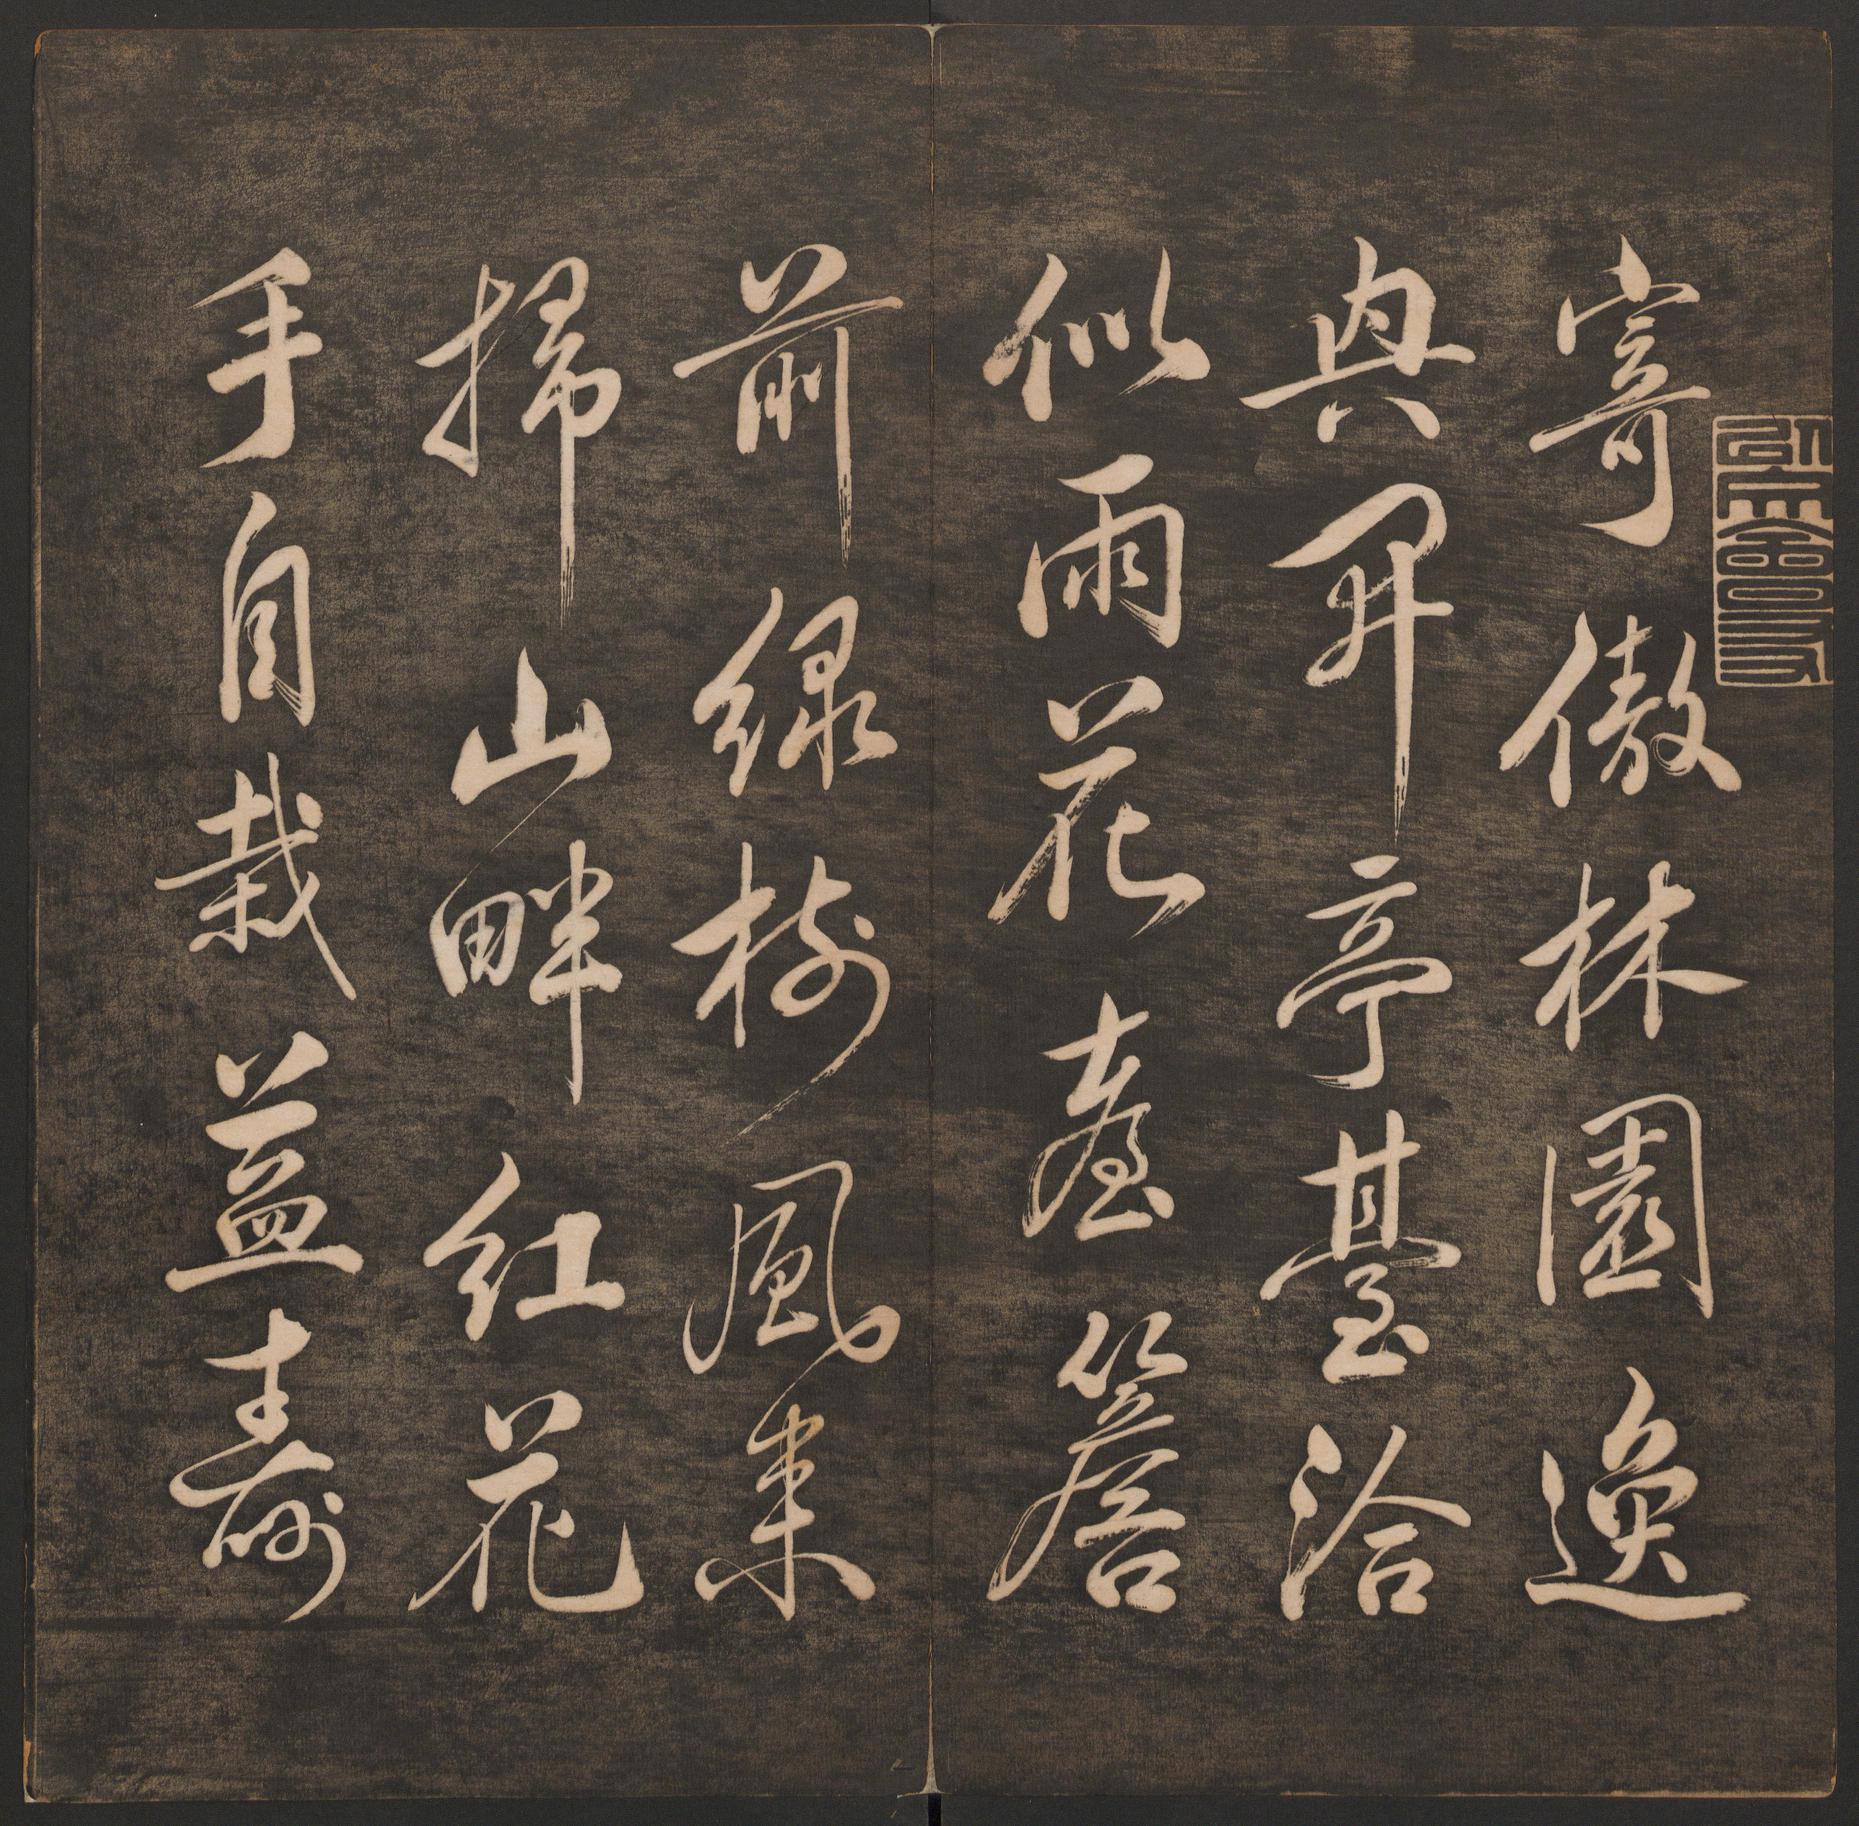 寄傲林園逸
興開亭臺洽
似雨花臺簷
前綠樹風來
掃山畔紅花
手自栽益壽